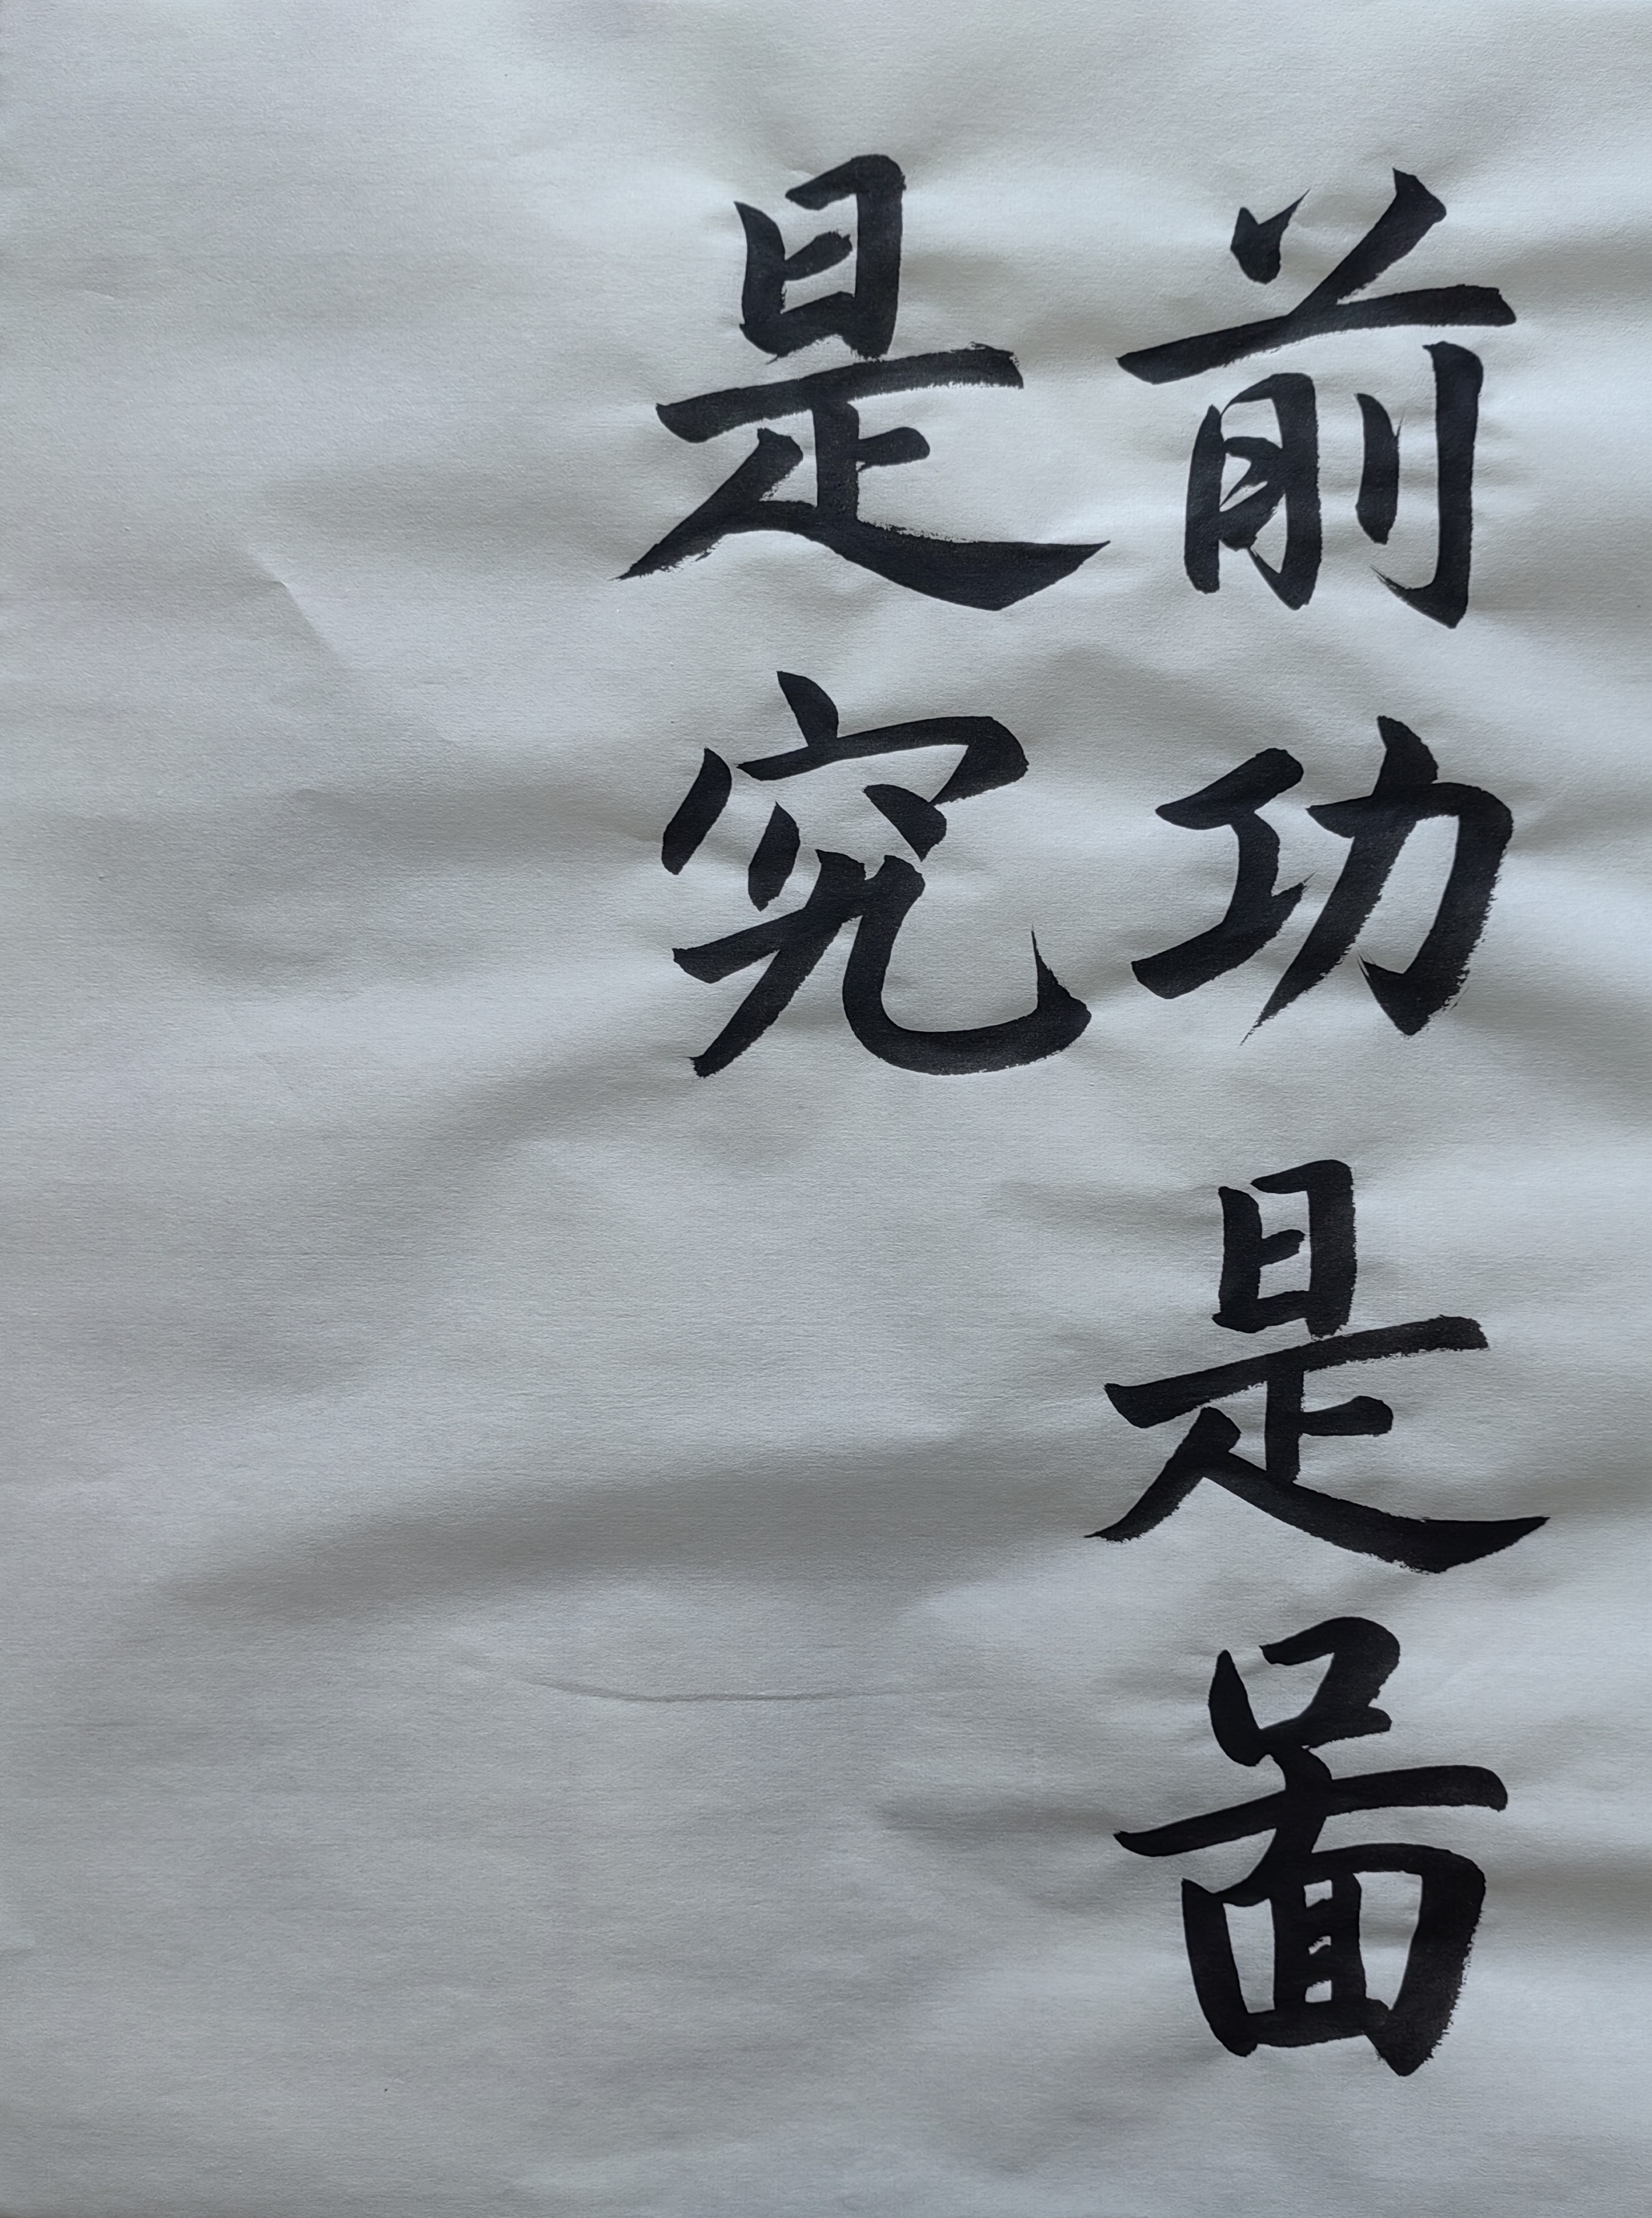 前功是啚
是究